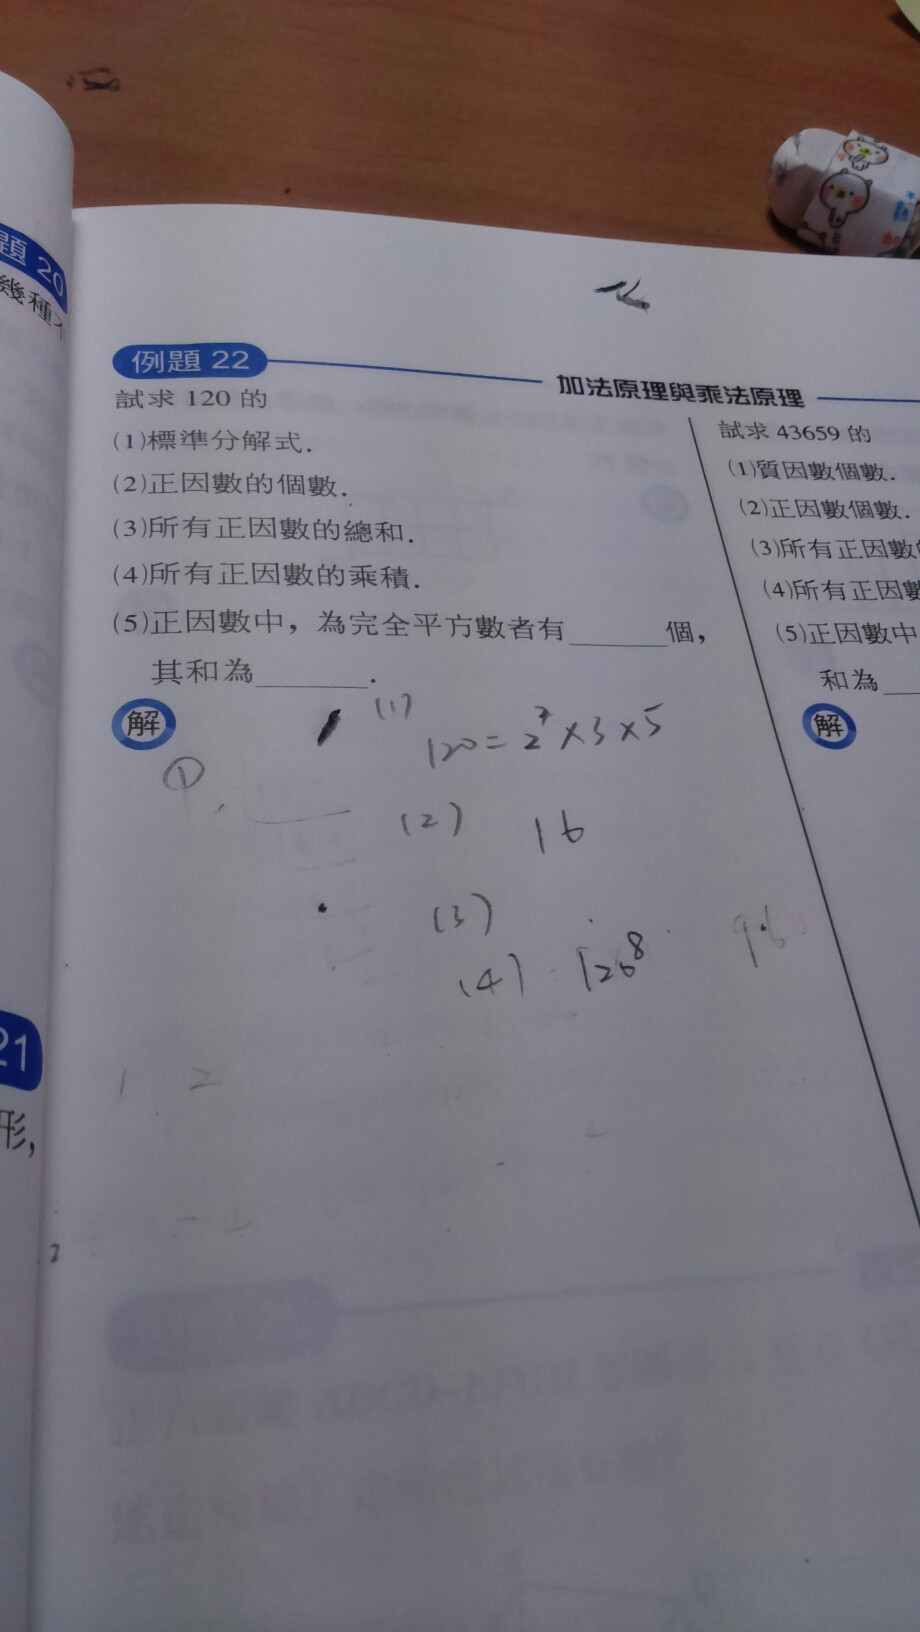 題 20
幾種
例題 22
加法原理與乘法原理
試求 120 的
(1)標準分解式.
(2)正因數的個數.
(3)所有正因數的總和.
(4)所有正因數的乘積.
(5)正因數中，為完全平方數者有______個，
其和為______.
解
試求 43659 的
(1)質因數個數.
(2)正因數個數.
(3)所有正因數
(4)所有正因數
(5)正因數中
和為
解
(1)
120 = 2³ × 3 × 5
①
(2) 16
(3)
(4) 120⁸
1 2
21
形,
2